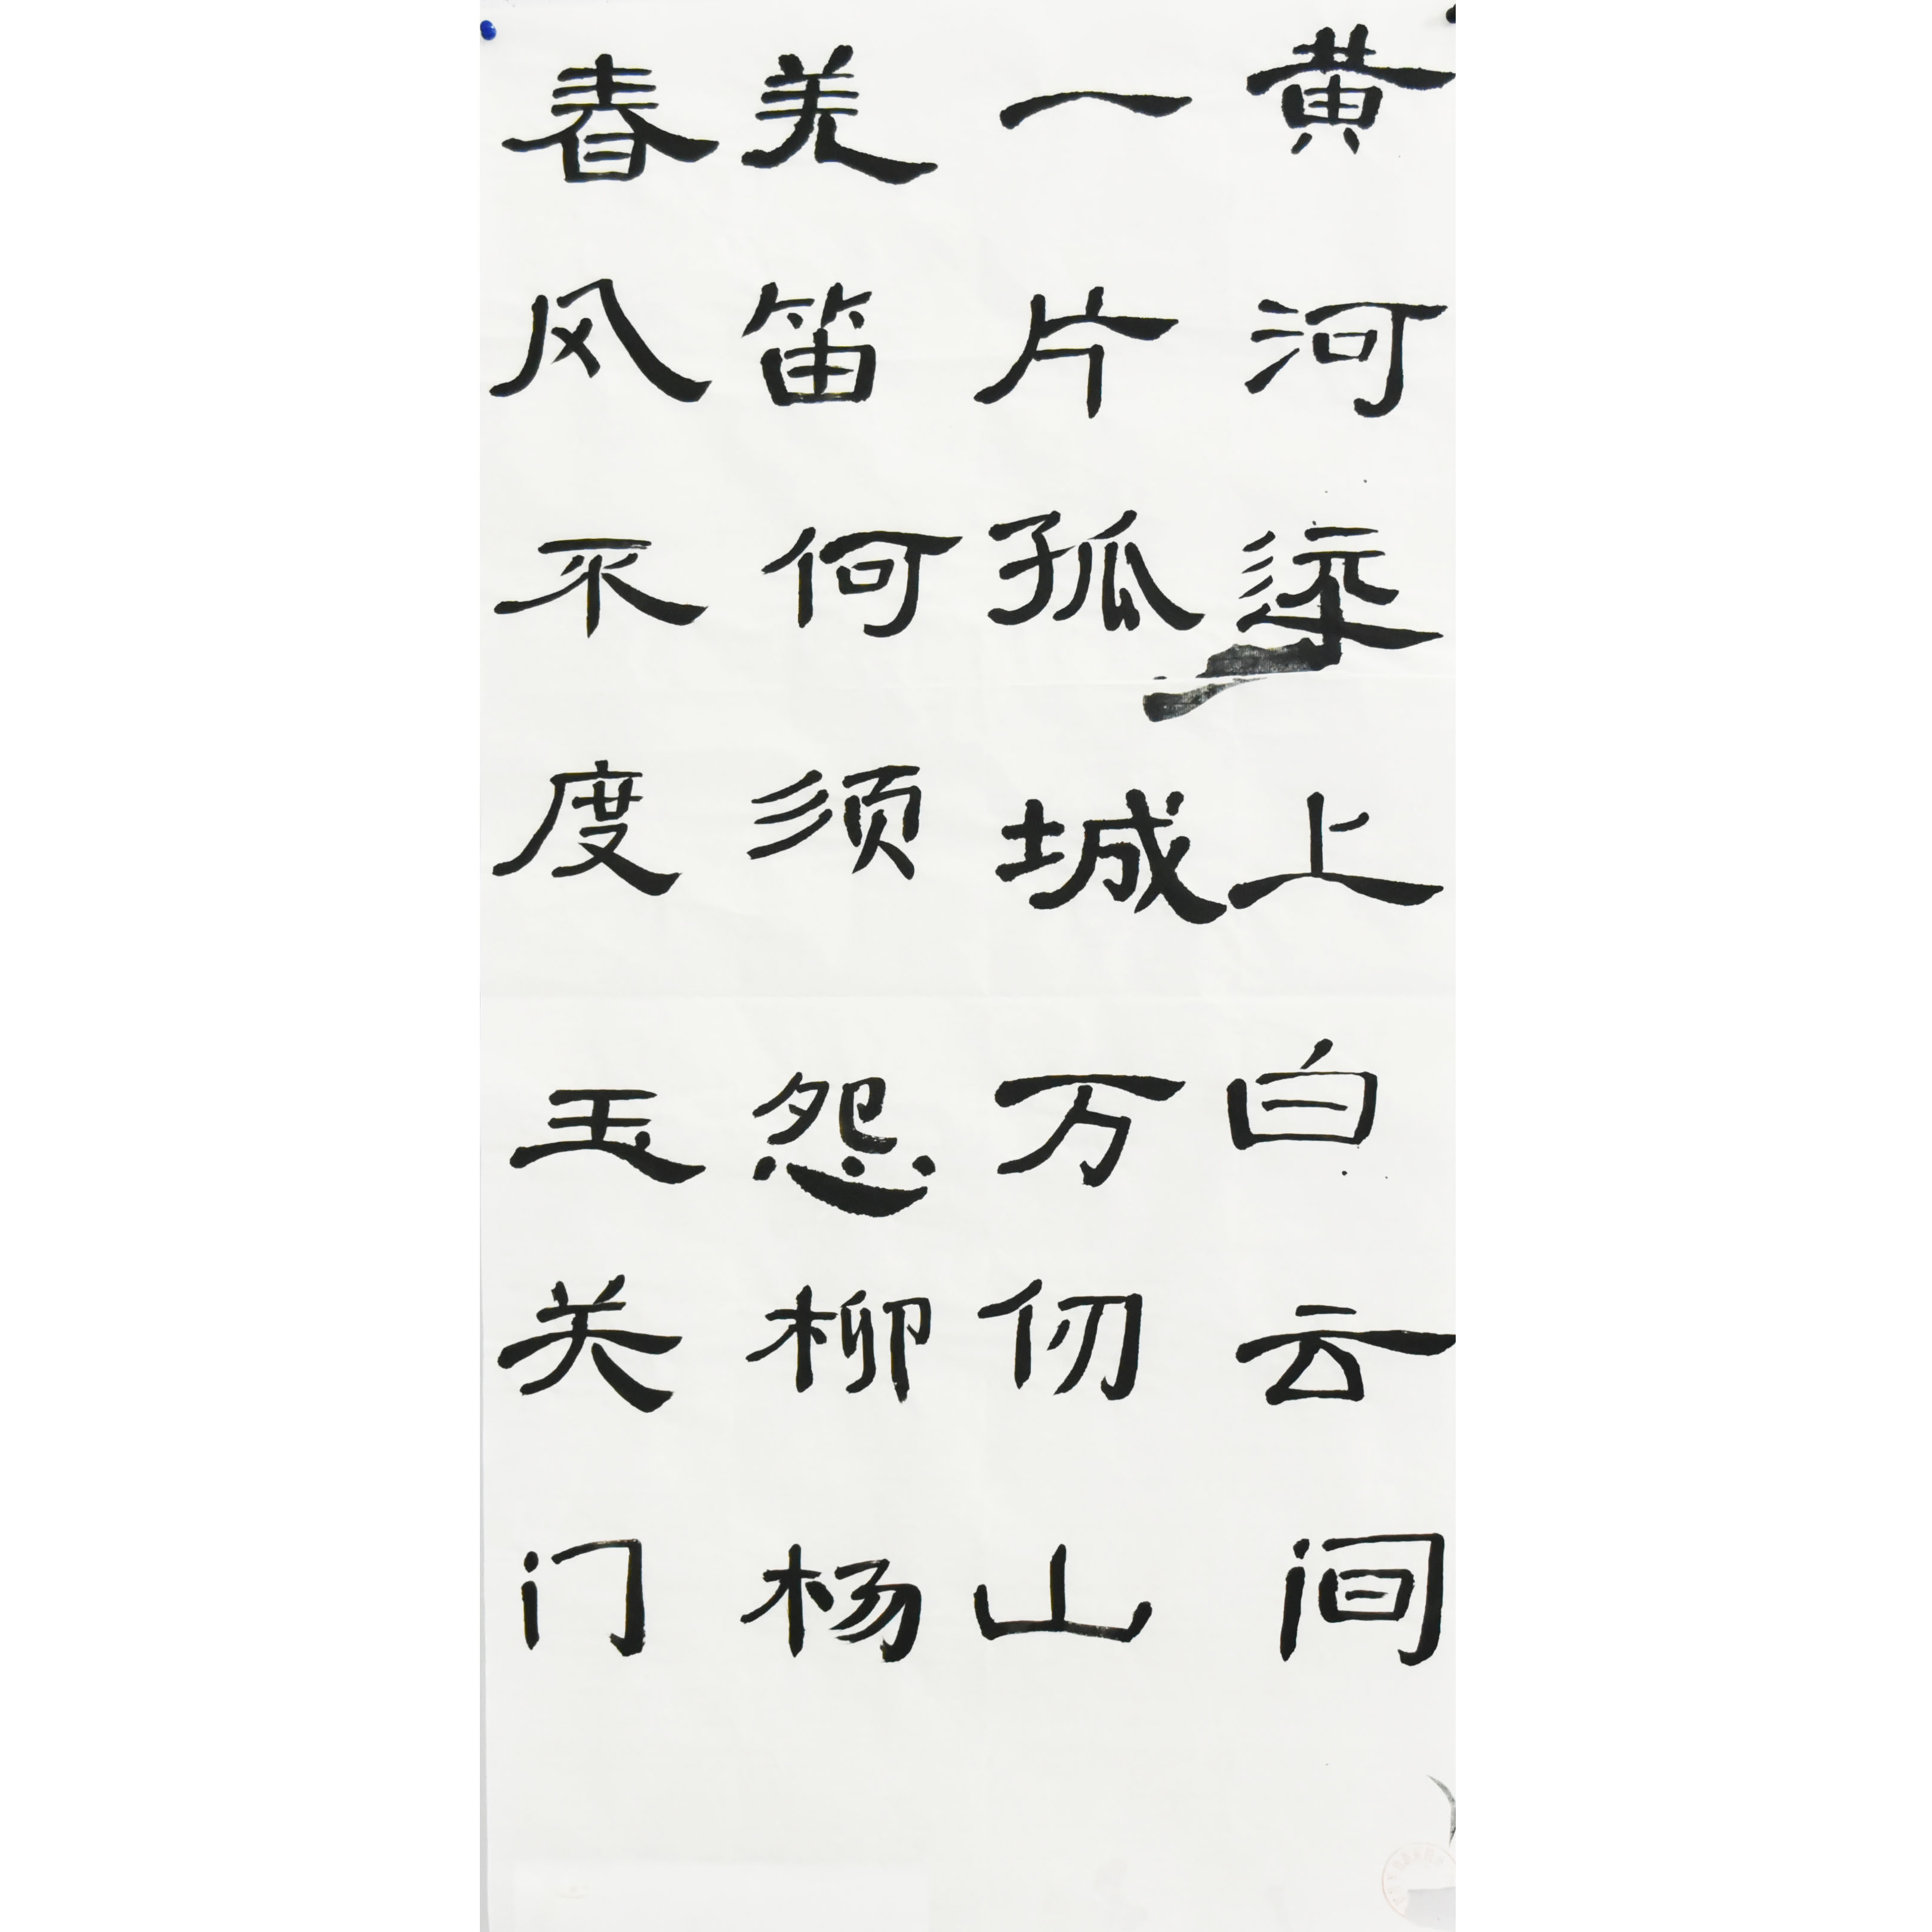 黄河远上白云间
一片孤城万仞山
羌笛何须怨柳杨
春风不度玉关门